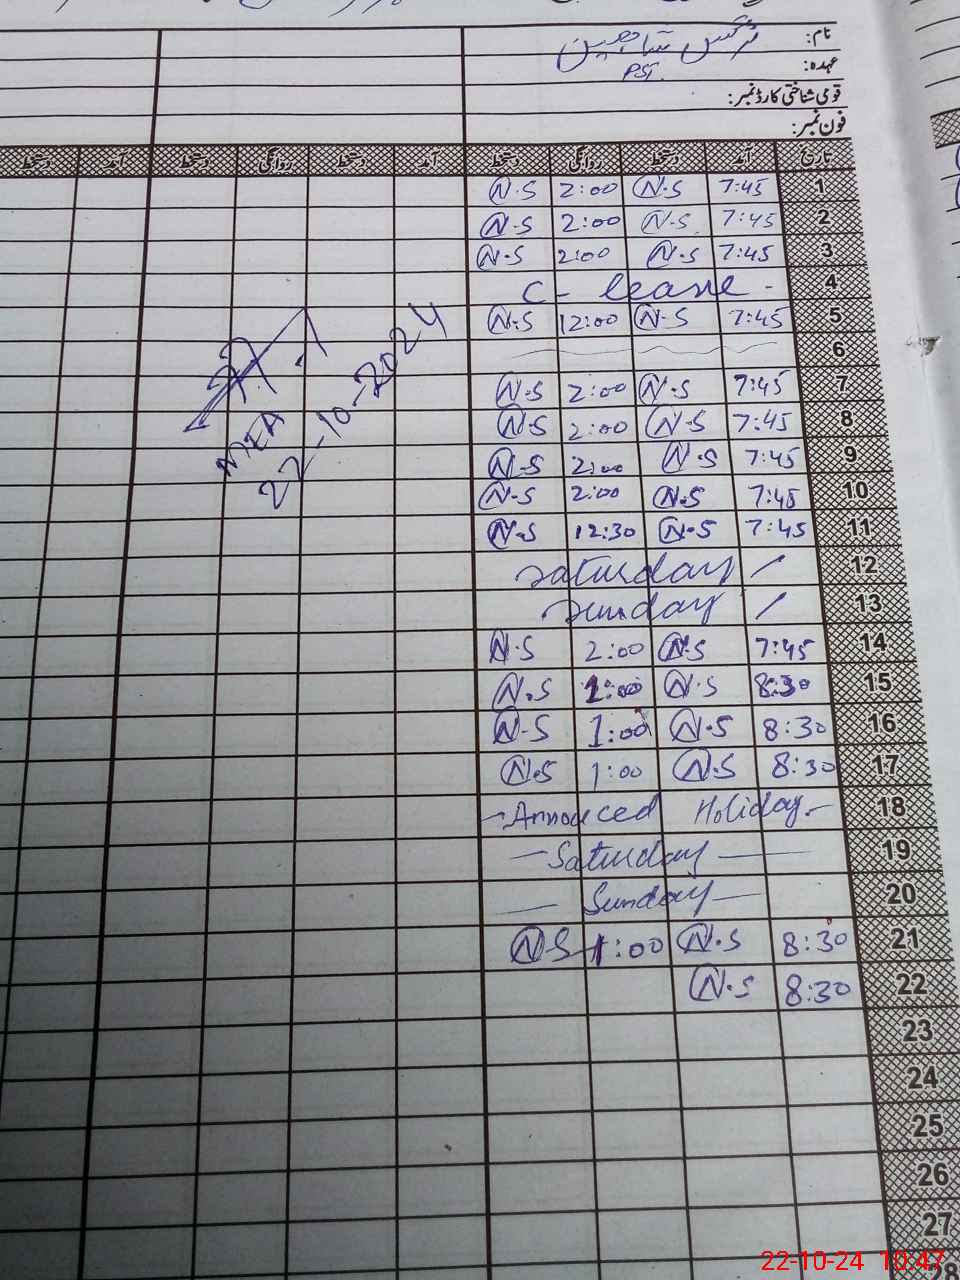 نام: نرگس شاہین
عہدہ: PST.
قومی شناختی کارڈ نمبر:
فون نمبر:
تاریخ آمد دستخط روانگی دستخط آمد دستخط روانگی دستخط آمد دستخط
1 7:45 N.S 2:00 N.S
2 7:45 N.S. 2:00 N.S
3 7:45 N.S 2:00 N.S
4 C - leave -
5 7:45 N.S 12:00 N.S
6
7 7:45 N.S 2:00 N.S
8 7:45 N.S 2:00 N.S
9 7:45 N.S 2:00 N.S
10 7:45 N.S 2:00 N.S
11 7:45 N.S 12:30 N.S
12 Saturday /
13 Sunday /
14 7:45 N.S 2:00 N.S
15 8:30 N.S 1:00 N.S
16 8:30 N.S 1:00 N.S
17 8:30 N.S 1:00 N.S
18 - Annouced Holiday -
19 - Saturday -
20 - Sunday -
21 8:30 N.S 1:00 N.S
22 8:30 N.S
23
24
25
26
27
28
MEA
22-10-2024
22-10-24 10:47